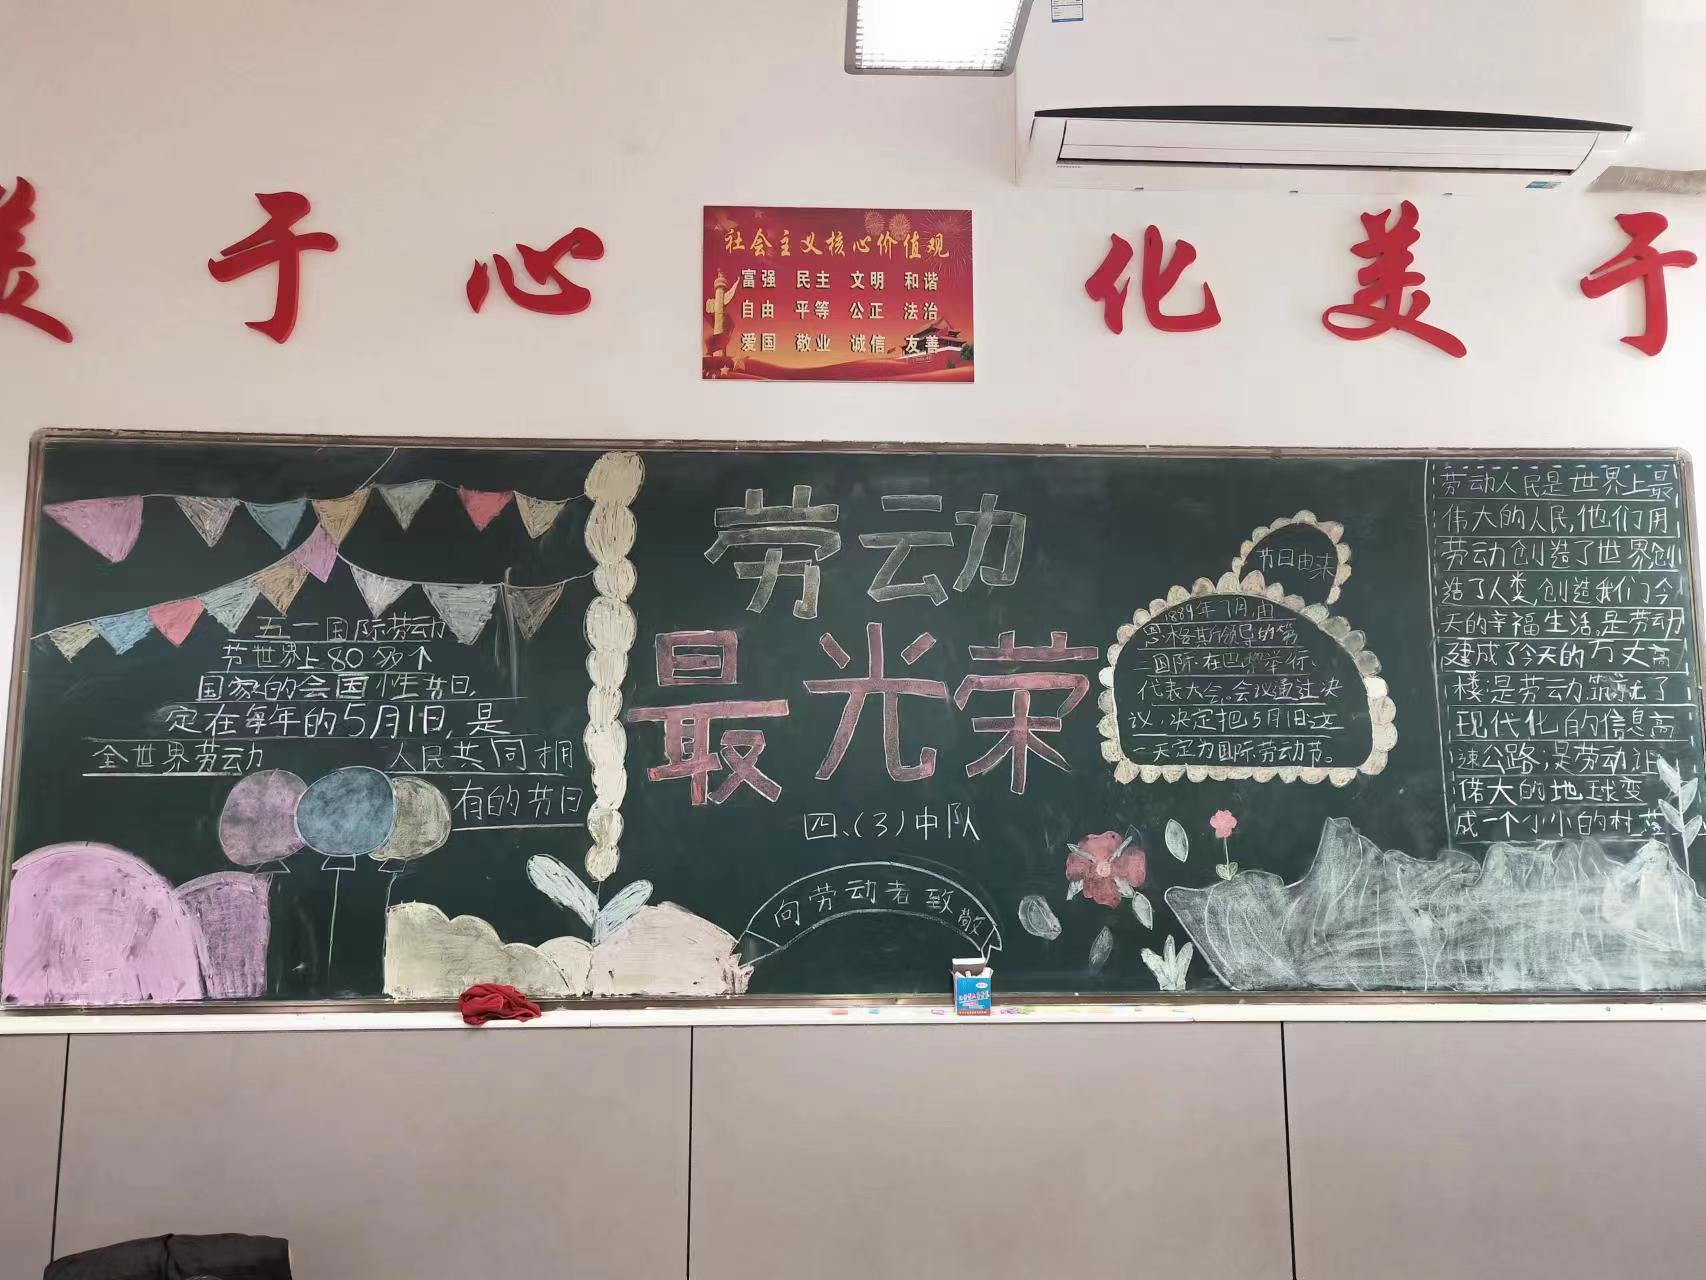 美 于 心
社会主义核心价值观
富强 民主 文明 和谐
自由 平等 公正 法治
爱国 敬业 诚信 友善
化 美 于
五一国际劳动
节世界上80多个
国家的全国性节日,
定在每年的5月1日,是
全世界劳动 人民共同拥
有的节日
劳动
最光荣
四、(3)中队
向劳动者致敬
节日由来
1889年7月,由
恩格斯领导的第
二国际在巴黎举行
代表大会。会议通过决
议,决定把5月1日这
一天定为国际劳动节。
劳动人民是世界上最
伟大的人民,他们用
劳动创造了世界创
造了人类,创造我们今
天的幸福生活。是劳动
建成了今天的万丈高
楼;是劳动筑就了
现代化的信息高
速公路;是劳动让
偌大的地球变
成一个小小的村落